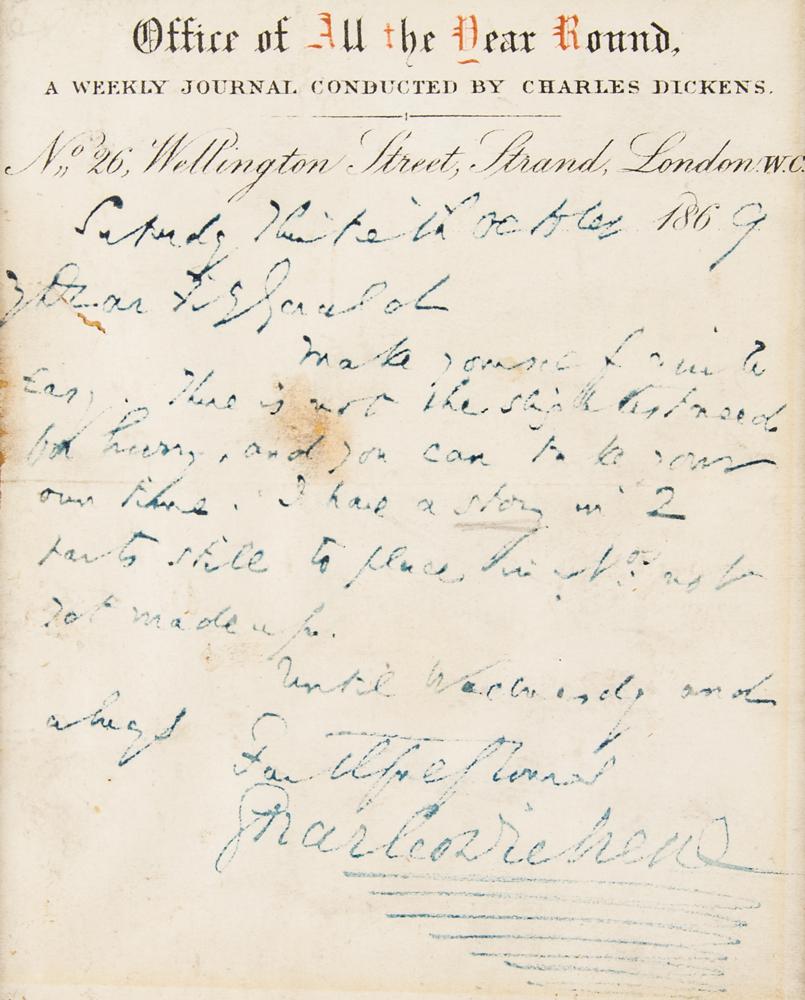 Office of All the Year Round,
A WEEKLY JOURNAL CONDUCTED BY CHARLES DICKENS.
No. 26, Wellington Street, Strand, London W.C.
Saturday Thirtieth October 1869
My Dear Fitzgerald
Make yourself quite
easy. There is not the slightest need
for hurry, and you can take your
own time. I have a story in 2
parts still to place in Nos. not
yet made up.
Until Wednesday and
always
Faithfully Yours
Charles Dickens